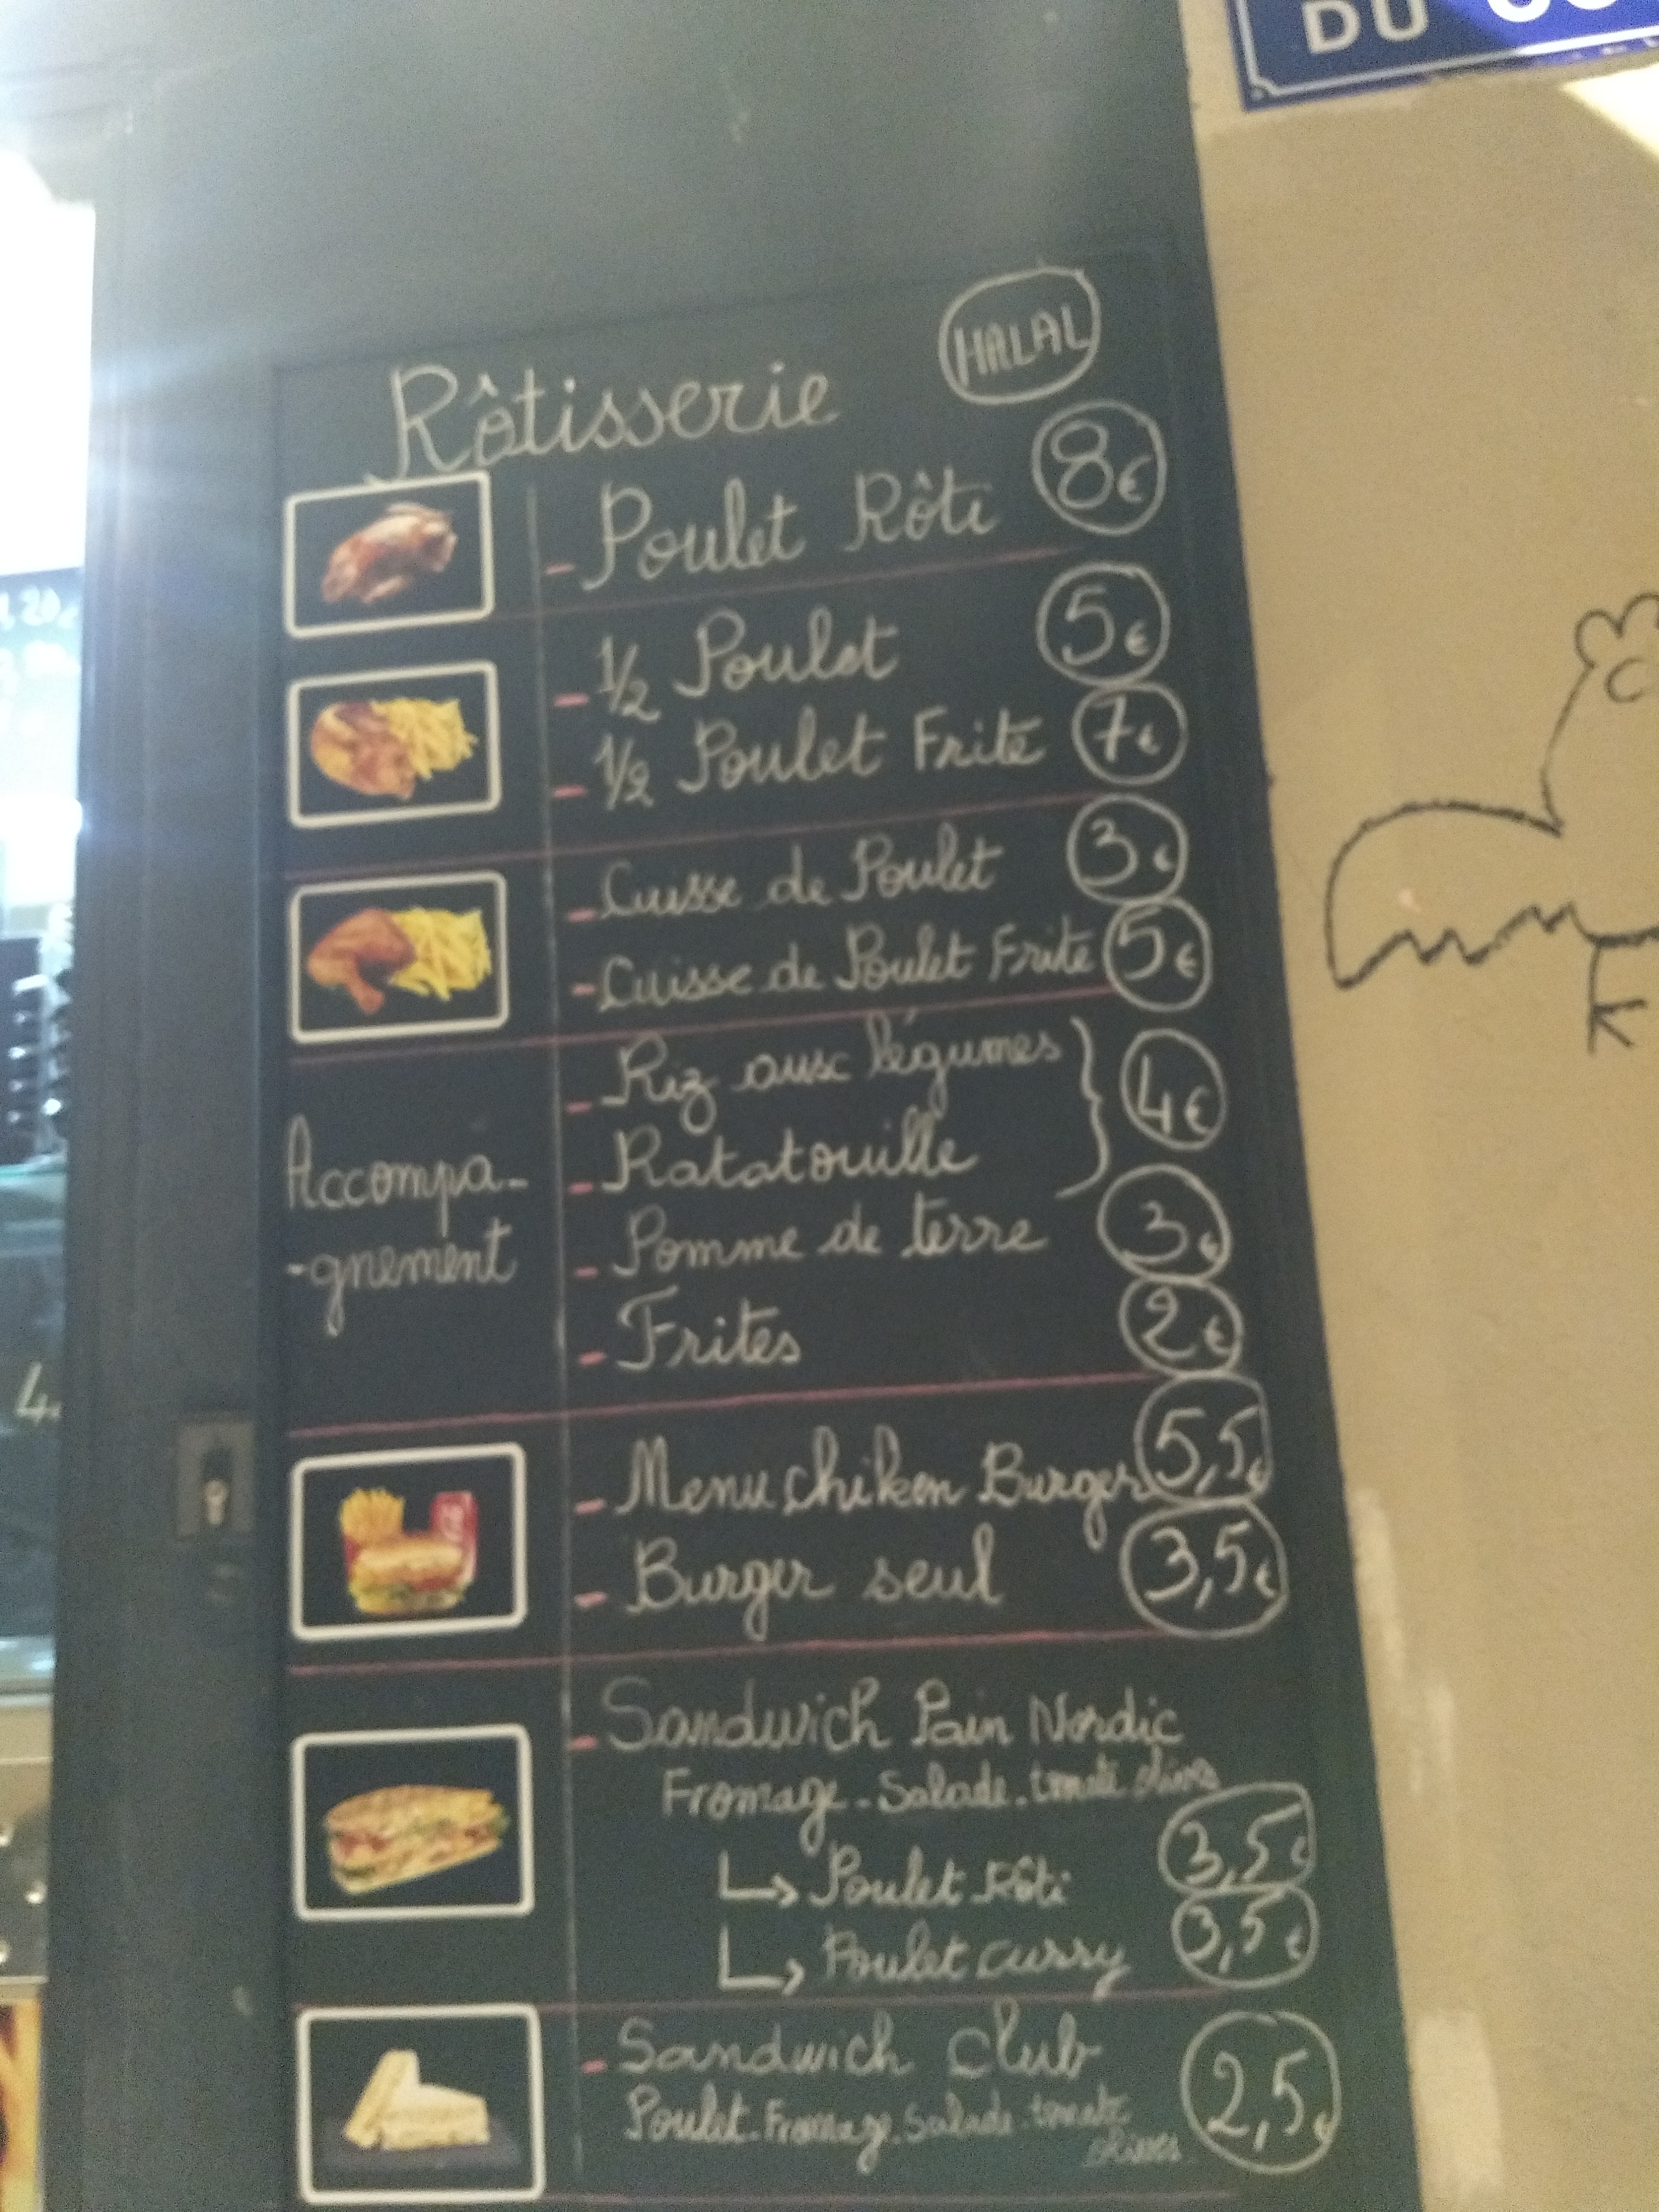 DU
HALAL
Rôtisserie
- Poulet Rôti 8€
- 1/2 Poulet 5€
- 1/2 Poulet Frite 7€
- Cuisse de Poulet 3€
- Cuisse de Poulet Frite 5€
Accompa-
-gnement
- Riz aux légumes
- Ratatouille } 4€
- Pomme de terre 3€
- Frites 2€
- Menu chiken Burger 5,5€
- Burger seul 3,5€
- Sandwich Pain Nordic
Fromage - Salade - tomate olives
↳ Poulet Rôti 3,5€
↳ Poulet curry 3,5€
- Sandwich Club 2,5€
Poulet - Fromage - Salade - tomate
olives